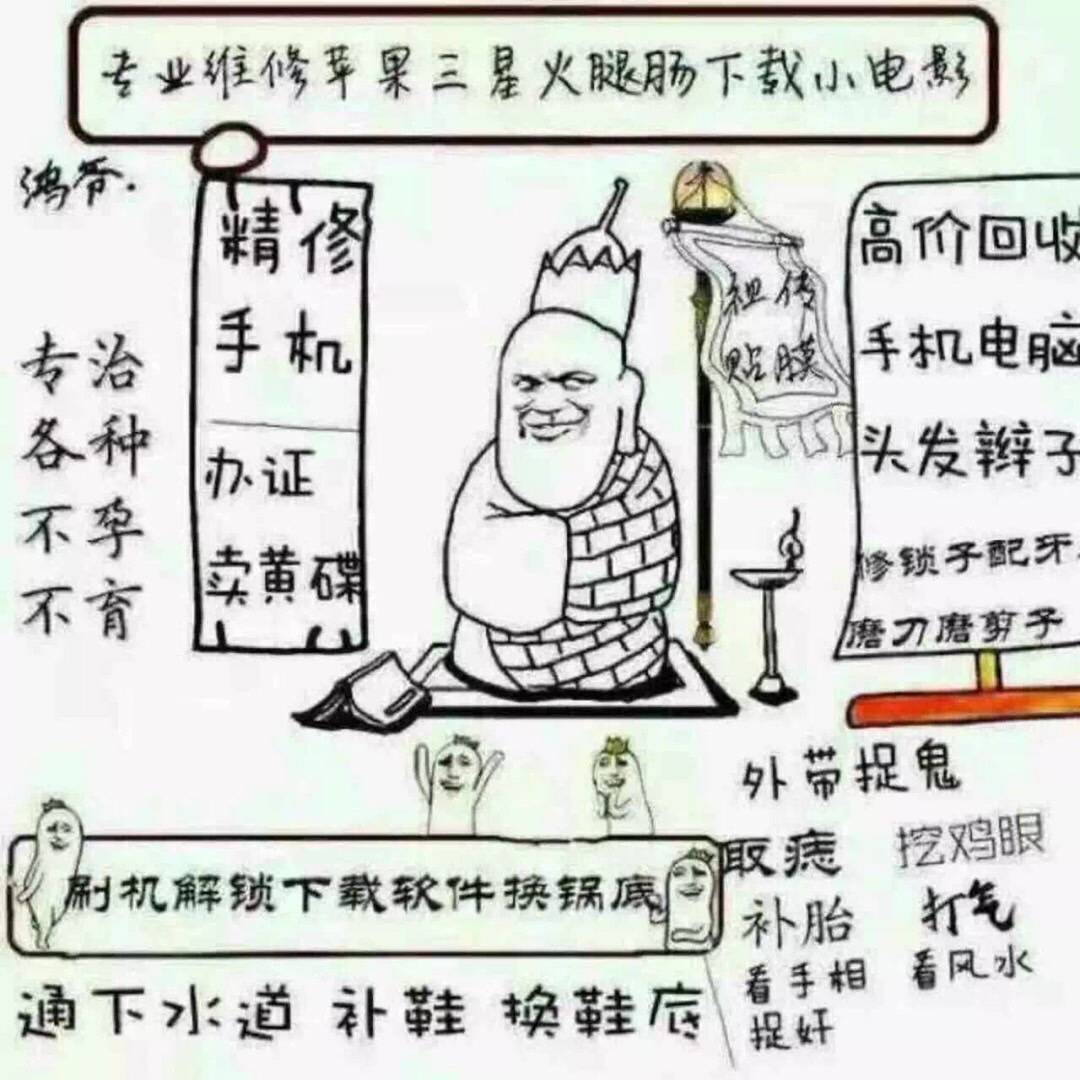 专业维修苹果三星火腿肠下载小电影
鸿爷.
专治
各种
不孕
不育
精修
手机
办证
卖黄碟
祖传
贴膜
高价回收
手机电脑
头发辫子
修锁子配牙
磨刀磨剪子
外带捉鬼
取痣
挖鸡眼
补胎
打气
看手相
看风水
捉奸
刷机解锁下载软件换锅底
通下水道 补鞋 换鞋底